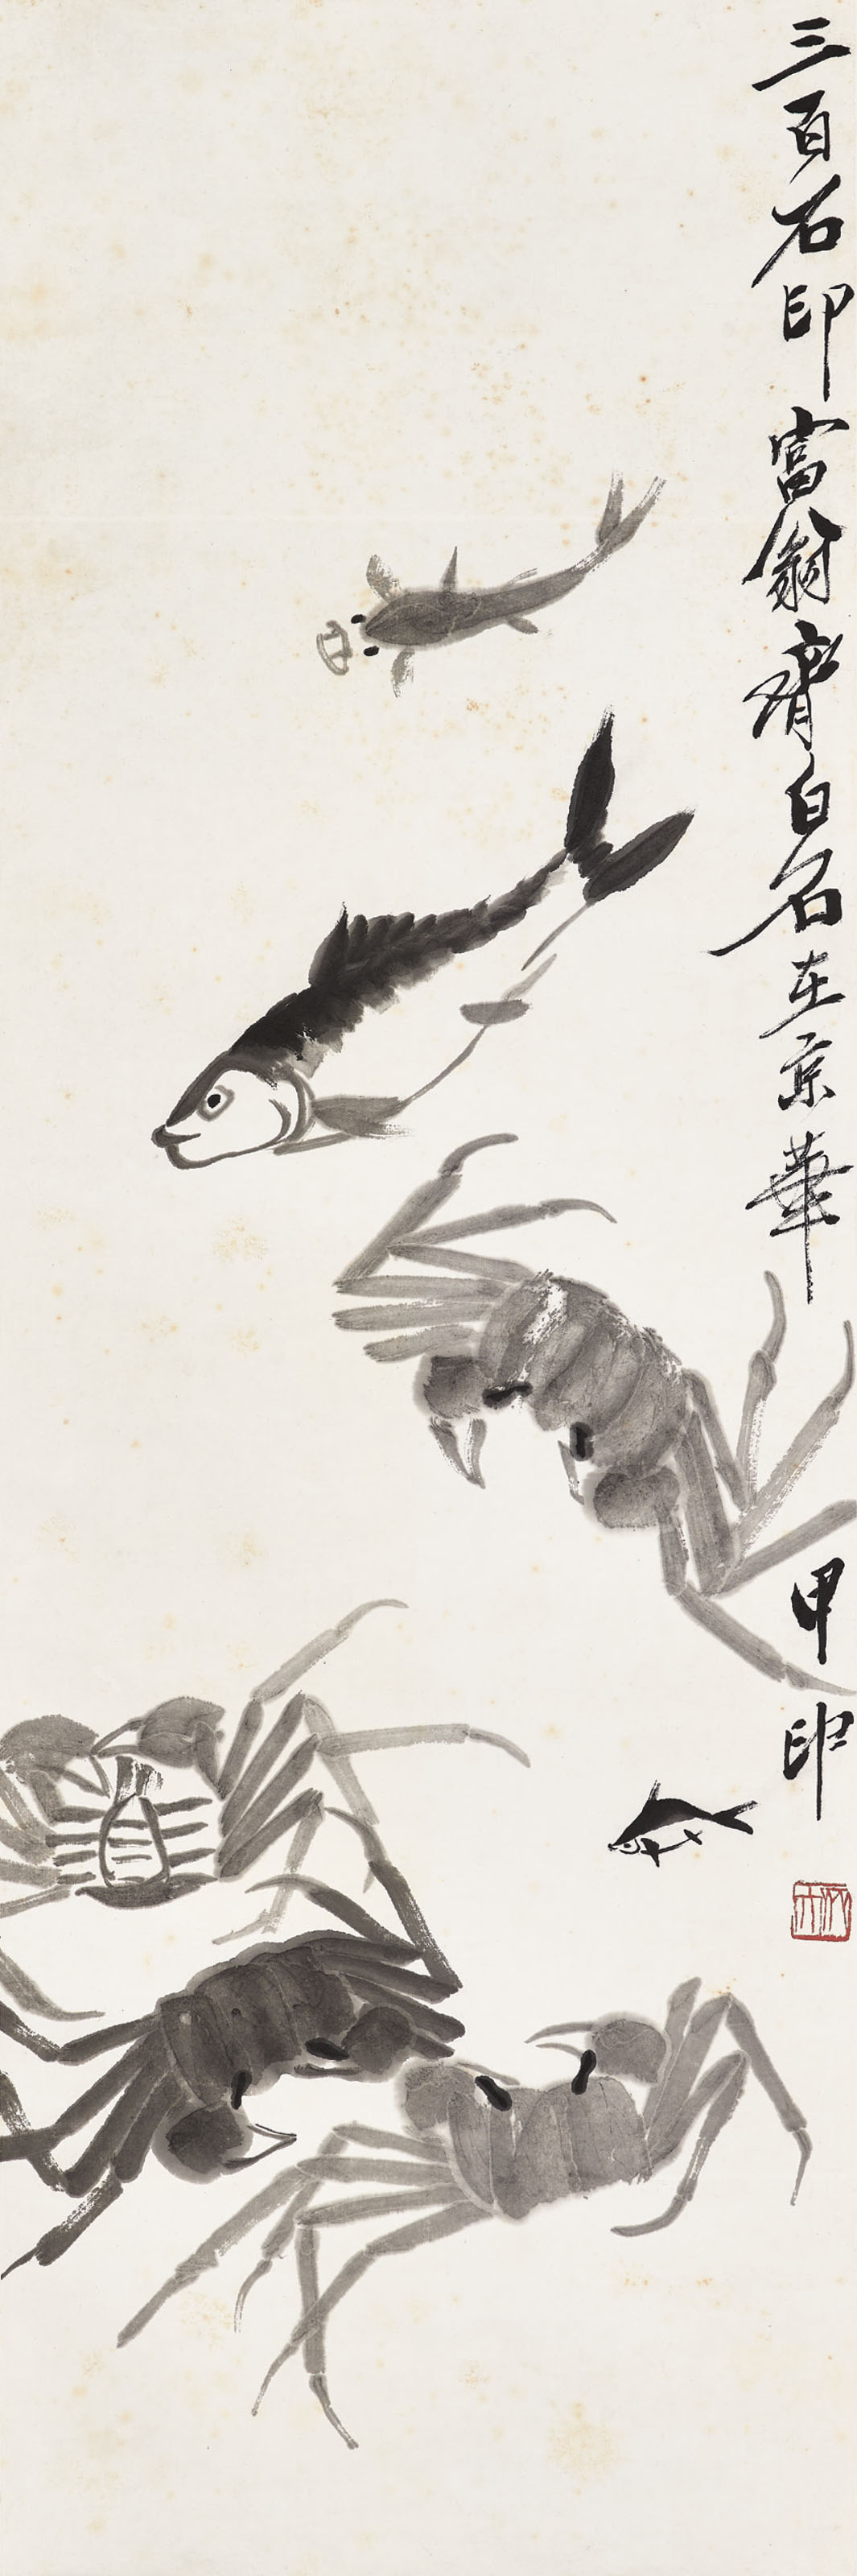 三百石印富翁齊白石在京華
甲印
木人